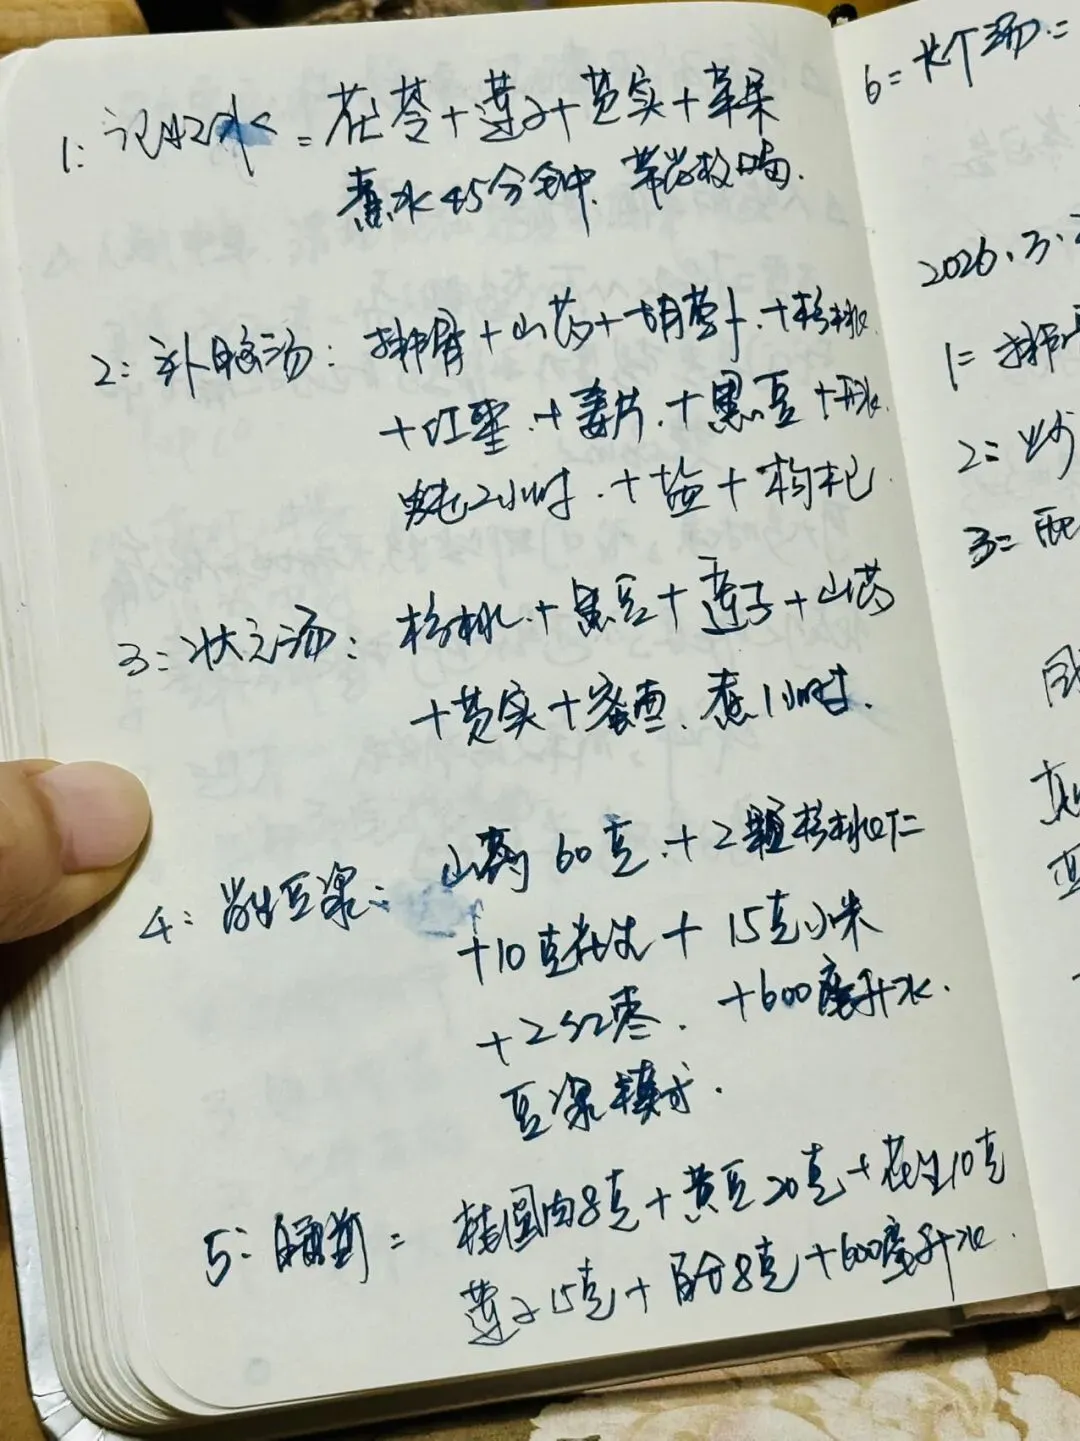 1: 记好水 = 茯苓+莲子+芡实+苹果
煮水45分钟. 带学校喝.
2: 补脑汤: 排骨+山药+胡萝卜.+核桃
+红枣.+姜片.+黑豆+开水
炖2小时.+盐+枸杞
3: 状元汤: 核桃.+黑豆+莲子+山药
+芡实+蜜枣. 煮1小时.
4: 豆浆: 山药60克.+2颗核桃仁
+10克花生+15克小米
+2红枣. +600毫升水.
豆浆模式.
5: = 桂圆肉8克+黄豆20克+花生10克
莲子15克+百合8克+600毫升水.
6= 长个汤=
2026.3.
1= 排
2= 炒
3= 配